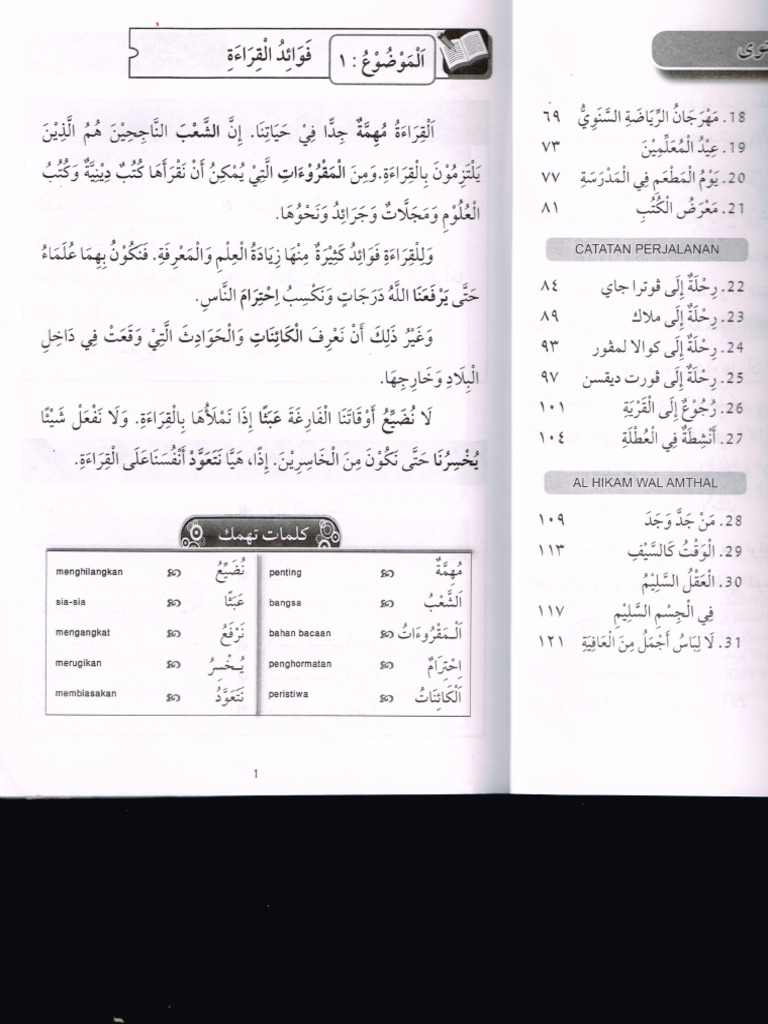 اَلْمَوْضُوْعُ : ١ فَوَائِدُ الْقِرَاءَةِ
اَلْقِرَاءَةُ مُهِمَّةٌ جِدًّا فِيْ حَيَاتِنَا. إِنَّ الشَّعْبَ النَّاجِحِيْنَ هُمُ الَّذِيْنَ
يَلْتَزِمُوْنَ بِالْقِرَاءَةِ.وَمِنَ الْمَقْرُوْءَاتِ الَّتِيْ يُمْكِنُ أَنْ نَقْرَأَهَا كُتُبٌ دِيْنِيَّةٌ وَكُتُبُ
الْعُلُوْمِ وَمَجَلَّاتٌ وَجَرَائِدُ وَنَحْوُهَا.
وَلِلْقِرَاءَةِ فَوَائِدُ كَثِيْرَةٌ مِنْهَا زِيَادَةُ الْعِلْمِ وَالْمَعْرِفَةِ. فَنَكُوْنُ بِهِمَا عُلَمَاءُ
حَتَّى يَرْفَعَنَا اللَّهُ دَرَجَاتٍ وَنَكْسِبُ اِحْتِرَامَ النَّاسِ.
وَغَيْرُ ذَلِكَ أَنْ نَعْرِفَ الْكَائِنَاتِ وَالْحَوَادِثَ الَّتِيْ وَقَعَتْ فِي دَاخِلِ
الْبِلَادِ وَخَارِجِهَا.
لَا نُضَيِّعُ أَوْقَاتَنَا الْفَارِغَةَ عَبَثًا إِذَا نَمْلَأُهَا بِالْقِرَاءَةِ. وَلَا نَفْعَلْ شَيْئًا
يُخْسِرُنَا حَتَّى نَكُوْنَ مِنَ الْخَاسِرِيْنَ. إِذًا، هَيَّا نَتَعَوَّدْ أَنْفُسَنَاعَلَى الْقِرَاءَةِ.
كلمات تهمك
مُهِمَّةٌ penting نُضَيِّعُ menghilangkan
اَلشَّعْبُ bangsa عَبَثًا sia-sia
اَلْمَقْرُوءَاتُ bahan bacaan نَرْفَعُ mengangkat
اِحْتِرَامٌ penghormatan يُخْسِرُ merugikan
اَلْكَائِنَاتُ peristiwa نَتَعَوَّدُ membiasakan
1
18. مَهْرَجَانُ الرِّيَاضَةِ السَّنَوِيُّ ٦٩
19. عِيْدُ الْمُعَلِّمِيْنَ ٧٣
20. يَوْمُ الْمَطْعَمِ فِي الْمَدْرَسَةِ ٧٧
21. مَعْرَضُ الْكُتُبِ ٨١
CATATAN PERJALANAN
22. رِحْلَةٌ إِلَى ڤوترا جاي ٨٤
23. رِحْلَةٌ إِلَى ملاك ٨٩
24. رِحْلَةٌ إِلَى كوالا لمڤور ٩٣
25. رِحْلَةٌ إِلَى ڤورت ديقسن ٩٧
26. رُجُوْعٌ إِلَى الْقَرْيَةِ ١٠١
27. أَنْشِطَةٌ فِي الْعُطْلَةِ ١٠٤
AL HIKAM WAL AMTHAL
28. مَنْ جَدَّ وَجَدَ ١٠٩
29. الْوَقْتُ كَالسَّيْفِ ١١٣
30. الْعَقْلُ السَّلِيْمُ
فِي الْجِسْمِ السَّلِيْمِ ١١٧
31. لَا لِبَاسُ أَجْمَلُ مِنَ الْعَافِيَةِ ١٢١